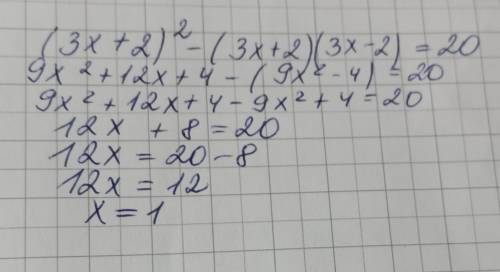 (3x+2)² - (3x+2)(3x-2) = 20
9x² + 12x + 4 - (9x² - 4) = 20
9x² + 12x + 4 - 9x² + 4 = 20
12x + 8 = 20
12x = 20 - 8
12x = 12
x = 1